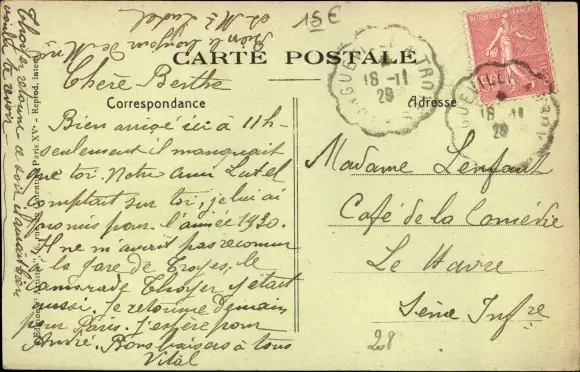 15€
CARTE POSTALE
Correspondance
Adresse
Chère Berthe
Bien arrivé ici à 11h-
seulement il manquait
que toi. Notre ami Lutel
comptait sur toi, je lui ai
promis pour l'année 1930.
Il ne m'avait pas reconnu
à la gare de Troyes, le
camarade Thoyer y était
aussi. Je retourne demain
pour Paris. J'espère pour
André. Bons baisers à tous
Vital
Thoyer retourne ce soir il aimait bien
Bien le bonjour de Mr
et Me Lutel
Madame Lenfant
Café de la Comédie
Le Havre
Seine Infre
28
REPUBLIQUE FRANÇAISE
18-11
29
18-11
29